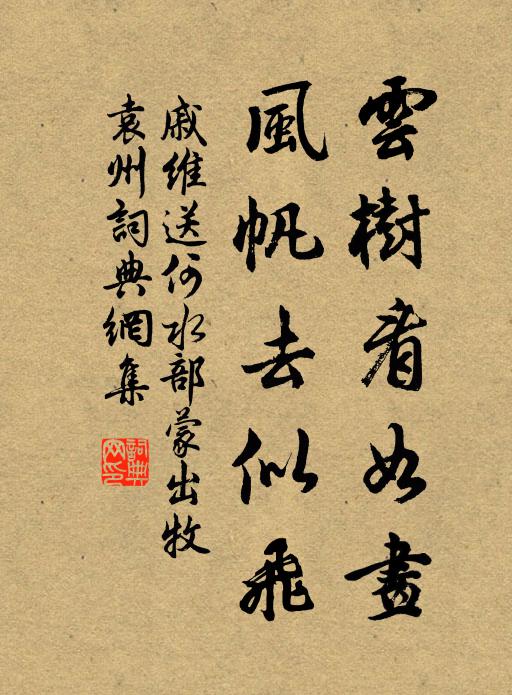 雲樹看如畫
風帆去似飛
戚維送何水部蒙出牧
袁州詞典網集
詞典
网印